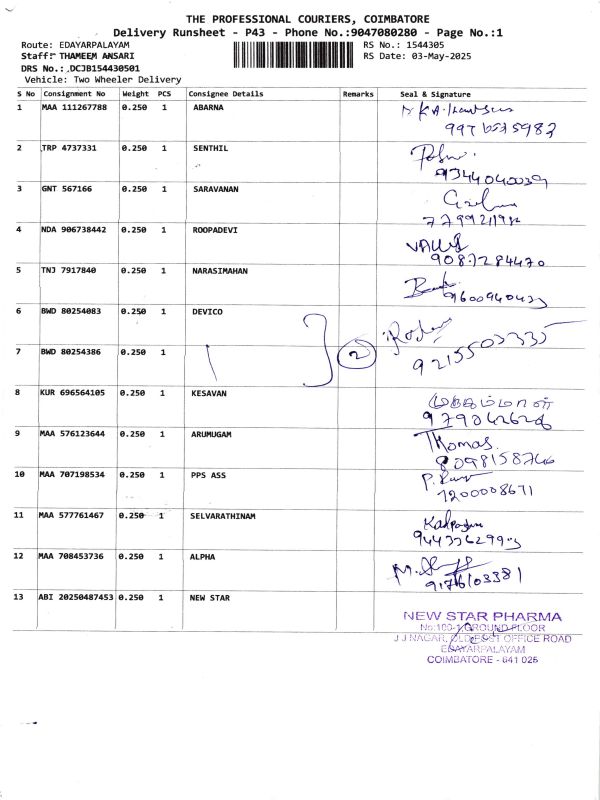 THE PROFESSIONAL COURIERS, COIMBATORE
Delivery Runsheet - P43 - Phone No.:9047080280 - Page No.:1
Route: EDAYARPALAYAM RS No.: 1544305
Staff: THAMEEM ANSARI RS Date: 03-May-2025
DRS No.: DCJB154430501
Vehicle: Two Wheeler Delivery
S No Consignment No Weight PCS Consignee Details Remarks Seal & Signature
1 MAA 111267788 0.250 1 ABARNA
2 TRP 4737331 0.250 1 SENTHIL
9344040039
3 GNT 567166 0.250 1 SARAVANAN
4 NDA 906738442 0.250 1 ROOPADEVI
9087284470
5 TNJ 7917840 0.250 1 NARASIMAHAN
9600940433
6 BWD 80254083 0.250 1 DEVICO
7 BWD 80254386 0.250 1 2
9215503335
8 KUR 696564105 0.250 1 KESAVAN
9 MAA 576123644 0.250 1 ARUMUGAM Thomas
8098158766
10 MAA 707198534 0.250 1 PPS ASS
7200008671
11 MAA 577761467 0.250 1 SELVARATHINAM
12 MAA 708453736 0.250 1 ALPHA
9176103381
13 ABI 20250487453 0.250 1 NEW STAR
NEW STAR PHARMA
No:100-1, GROUND FLOOR
J J NAGAR, OLD POST OFFICE ROAD
EDAYARPALAYAM
COIMBATORE - 641 025